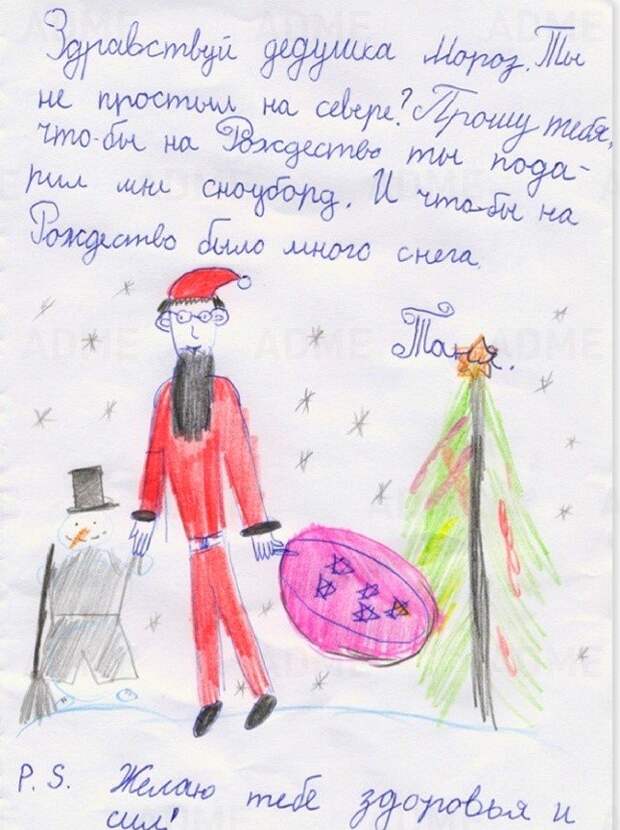 Здравствуй дедушка Мороз. Ты
не простыл на севере? Прошу тебя,
что-бы на Рождество ты пода-
рил мне сноуборд. И что-бы на
Рождество было много снега.
Таня.
P.S. Желаю тебе здоровья и
сил!